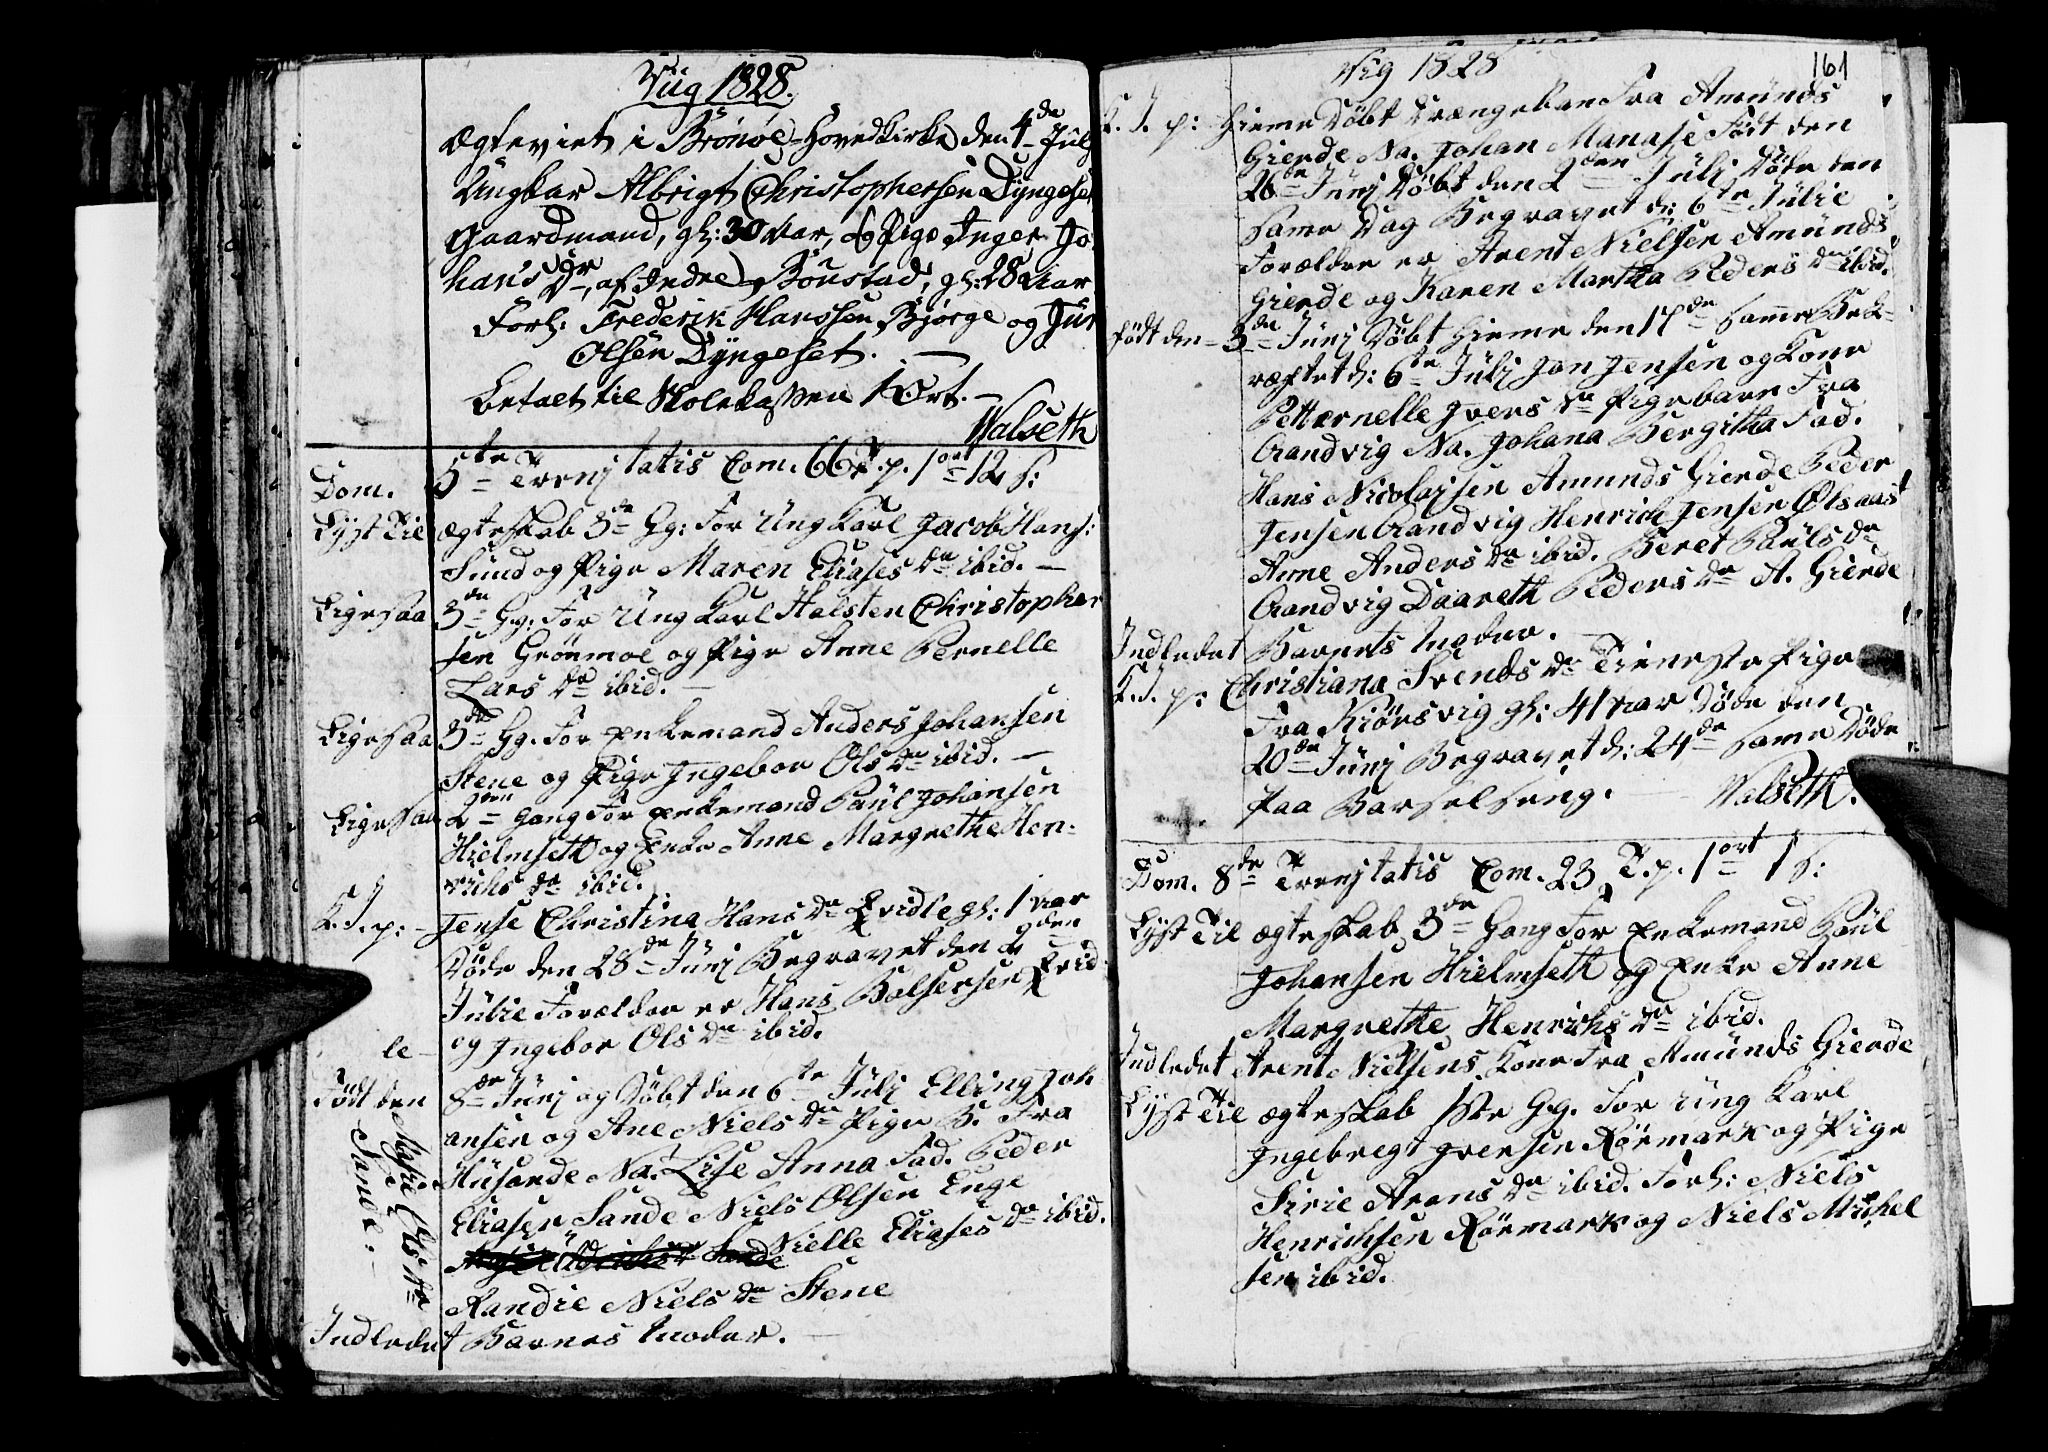 Viig 1828.
Ægteviet i Brönöe Hovedkirke den 4de Julj
Ungkar Albrigt Christophersen Dÿngeset
Gaardmand, gl: 30 Aar, og Pige Inger Jo
hans Dr, af Indre Bönstad, gl: 28 Aar
Forl: Frederik Hanssen Bjørge og
Olsen Dÿngeset. —
Betalt til Skolekassen 1 Ort. —
Walseth
Dom. 5te Trenjtatis Com. 66 T. p. 1 ort 12 s:
Lyst Til ægteskab 3de Gg: For Ung Karl Jacob Hans:
Sund og Pige Maren Eliases Dr ibid. —
Ligesaa 3de Gg: For Ung Karl Halsten Christopher
sen Grönmoe og Pige Anne Pernelle
Lars Dr ibid. —
Ligesaa 3de Gg. For Enkemand Anders Johansen
Stene og Pige Ingebor Ols Dr ibid. —
Ligesaa 2den Gang For Enkemand Paül Johansen
Hielmseth og Enke Anne Margrethe Hen-
richs Dr ibid.
K. J. p: – Jense Christina Hans Dr Qvidle gl: 1 Aar
Døde den 28de Junj Begravet den 2den
Julie Forældre er Hans Balsersen Qvid
le – og Ingebor Ols Dr ibid.
Født den 8de Junj og Døbt den 6te Julj Elling Joh
ansen og Ane Niels Dr Pige B. Fra
Husande Na. Lise Anna Fad. Peder
Eliasen Sande Niels Olsen Enge
Nielle Eliases Dr ibid.
Randie Niels Dr Stene
Ols Dr
Sande. –
Indledet Barnes Moder. —
Vig 1828
161
K. J. p: Hieme Døbt Drængeban Fra Amünds
Gierde Na. Johan Manase Født den
26de Junj Døbt den 2den Julj Døde den
Same Dag Begravet d: 6te Julie
Forældre er Arent Nielsen Amünds
Gierde og Karen Martha Peders Dr ibid.
Født den – 3de Junj Døbt Hieme den 17de Same Bek-
ræftet d: 6te Julj Jon Jensen og Kone
Petternelle Ivers Dr Pigebarn Fra
Grandvig Na. Johana Bergitha Fad.
Hans Nicolajsen Amunds Gierde Peder
Jensen Grandvig Henrich Jensen Olsaas
Anne Anders Dr ibid. Beret Paüls Dr
Grandvig Daareth Peders Dr A. Gierde
Indledet Barnets Moder. —
K. J. p: Christiana Svends Dr Tieneste Pige
Fra Kiörsvig gl: 41 Aar Døde den
20de Junj Begravet d: 24de Same Døde
Paa Barselseng. — Walseth.
Dom. 8de Trenjtatis Com. 23 T. p. 1 ort 1 s:
Lyst Til ægteskab 3de Gang For Enkemand Paül
Johansen Hielmseth og Enke Anne
Margrethe Henrichs Dr ibid.
Indledet Arent Nielsens Kone Fra Amünds Gierde
Lyst Til ægteskab 1ste Gg. For Ung Karl
Ingebregt Iversen Rörmark og Pige
Sirie Arons Dr ibid. Forl: Niels
Henrichsen Rörmark og Niels Mickel
sen ibid.